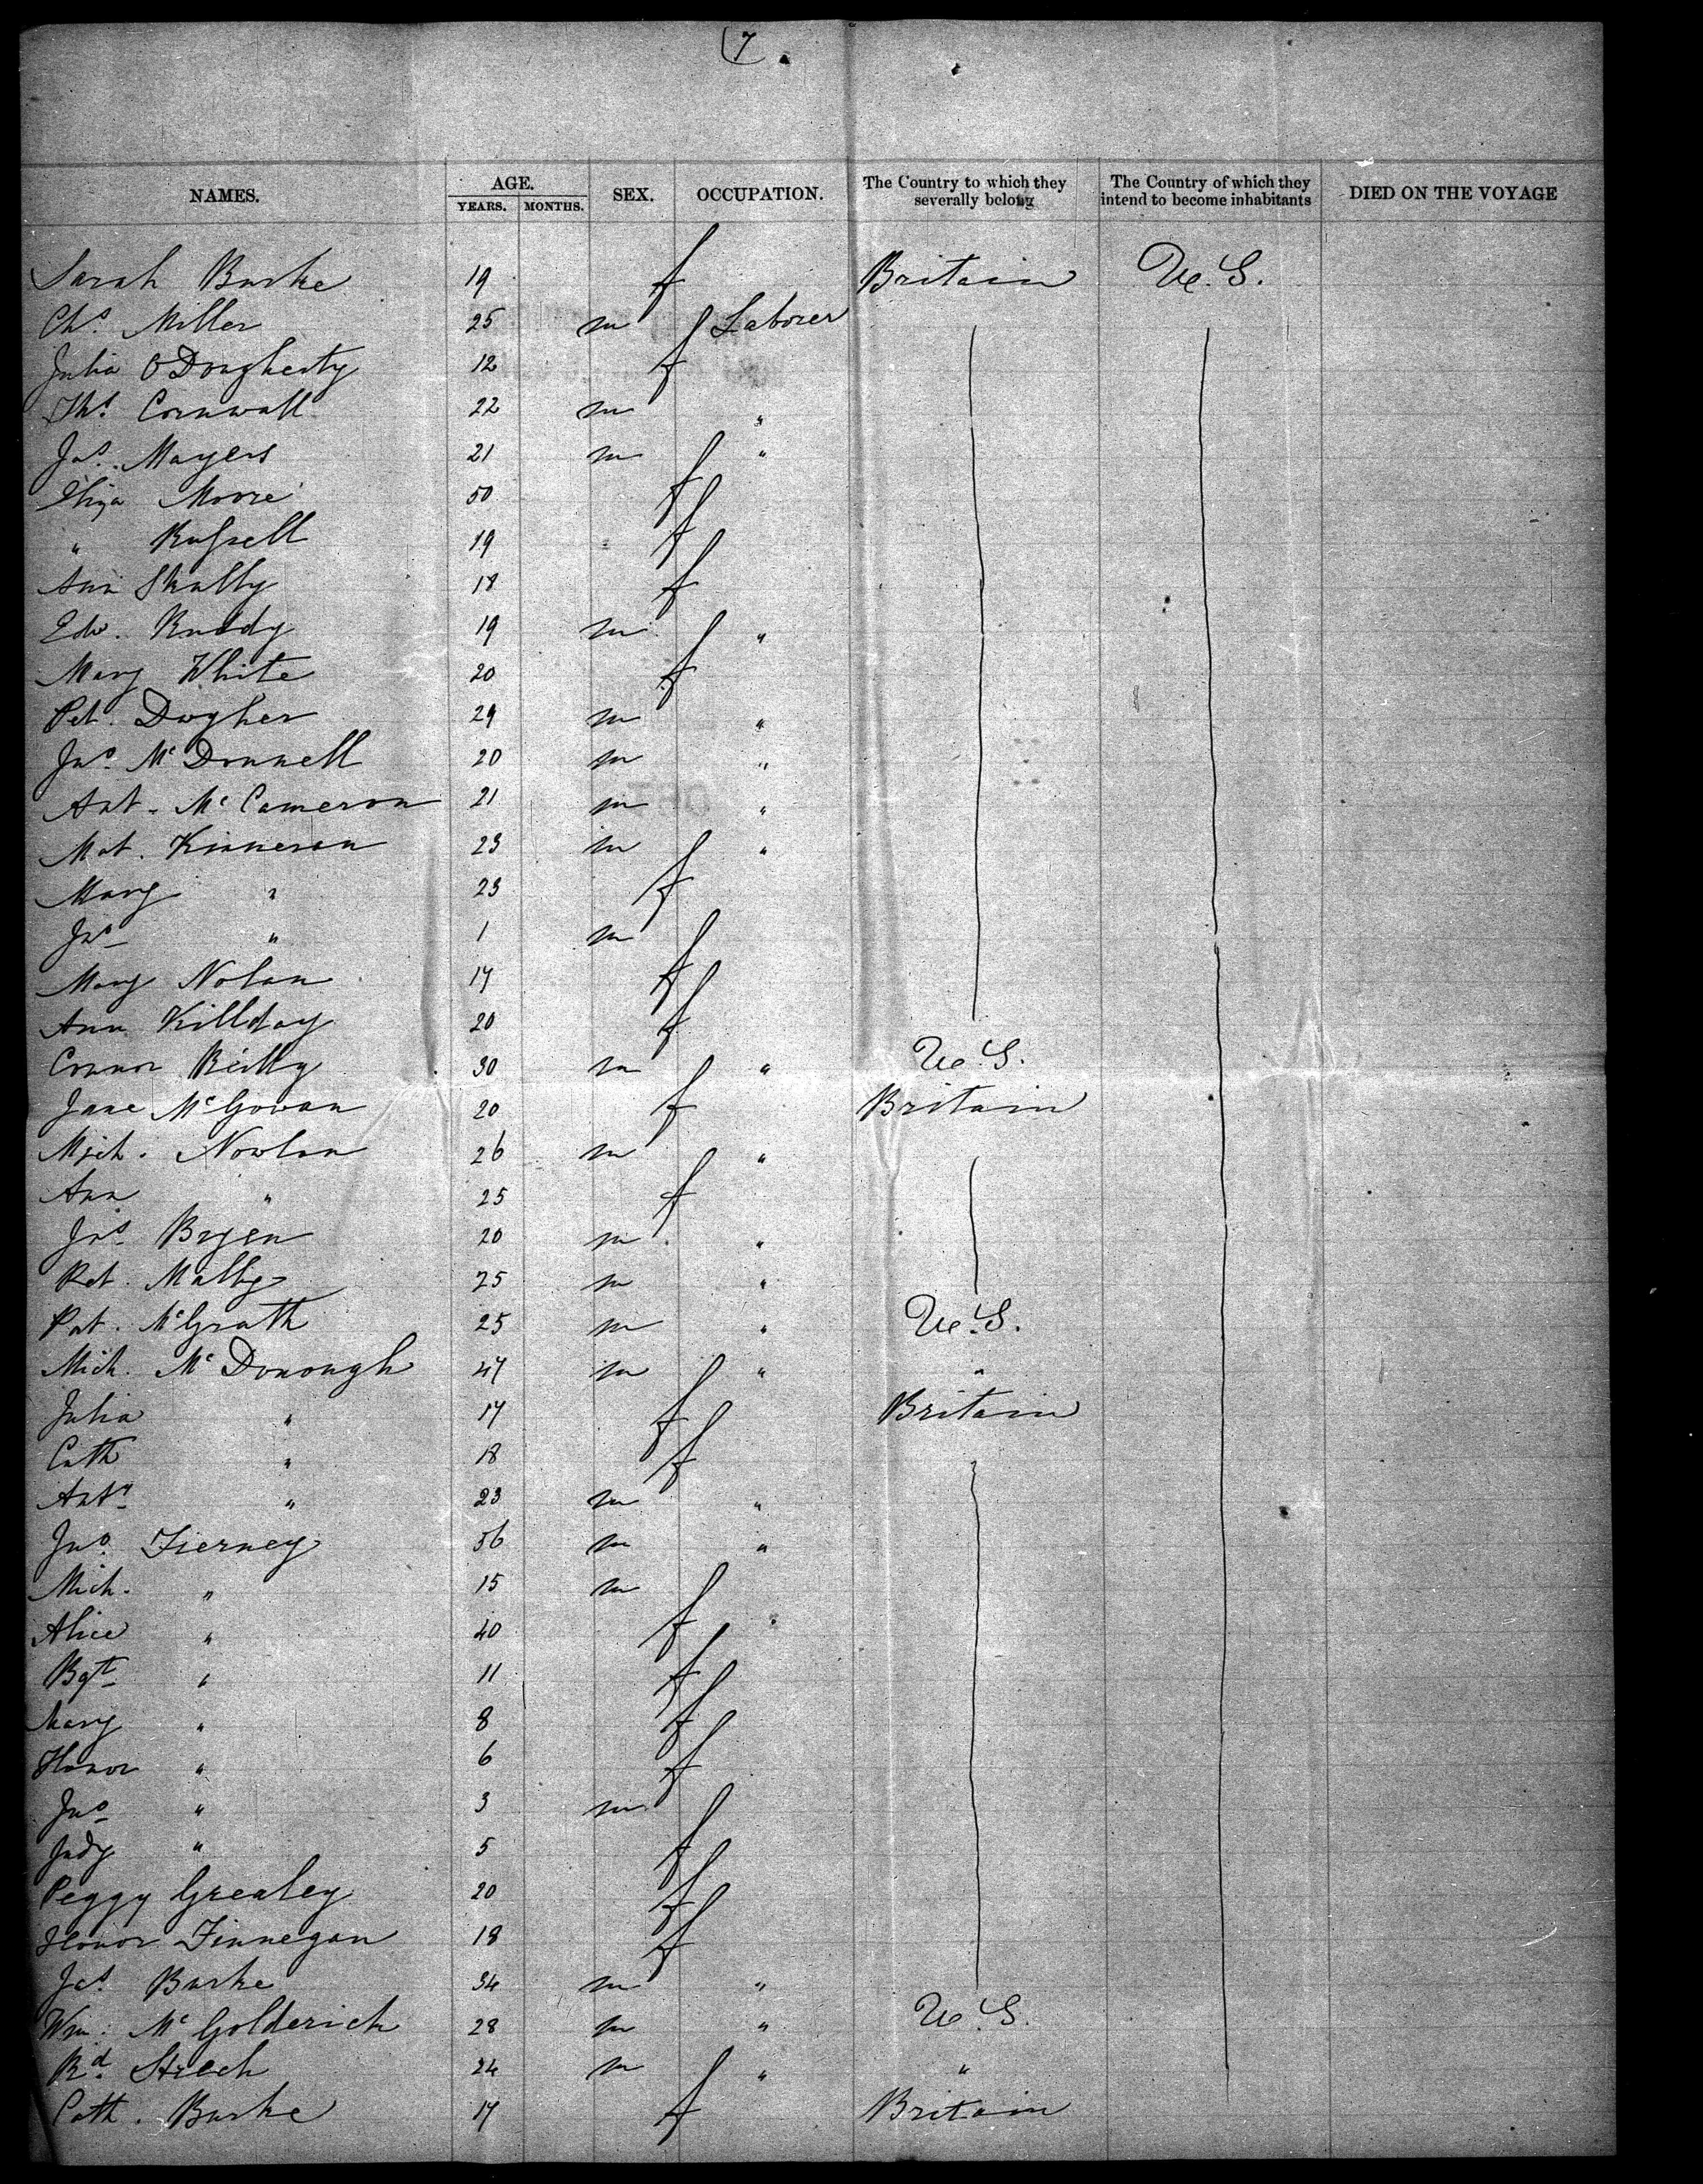 (7
NAMES. AGE. YEARS. MONTHS. SEX. OCCUPATION. The Country to which they severally belong The Country of which they intend to become inhabitants DIED ON THE VOYAGE
Sarah Burke 19 f Britain U.S.
Chs. Miller 25 m Laborer
Julia O'Dougherty 12 f
Ths. Cornwall 22 m "
Jas. Mayers 21 m "
Eliza Moore 50 f
" Russell 19 f
Ann Skully 18 f
Edw. Ruddy 19 m "
Mary White 20 f
Pet. Dwyher 29 m "
Jno. McDonnell 20 m "
Ant. McCameron 21 m "
Mat. Kinneran 23 m "
Mary " 23 f
Jno " 1 m
Mary Nolan 17 f
Ann Killday 20 f
Connor Reilly 30 m " U.S.
Jane McGowan 20 f Britain
Mich. Nowlan 26 m "
Ann " 25 f
Jas. Bryen 20 m "
Pet. Mally 25 m "
Pat. McGrath 25 m " U.S.
Mich. McDonough 47 m " "
Julia " 17 f Britain
Cath " 18 f
Anty " 23 m "
Jno. Tierney 56 m "
Mich. " 15 m
Alice " 40 f
Bgt " 11 f
Mary " 8 f
Honor " 6 f
Jno " 3 m
Judy " 5 f
Peggy Grealey 20 f
Honor Finnegan 18 f
Jas. Burke 34 m "
Wm. McGolderich 28 m " U.S.
Rd. Steech 24 m " "
Cath. Burke 17 f Britain